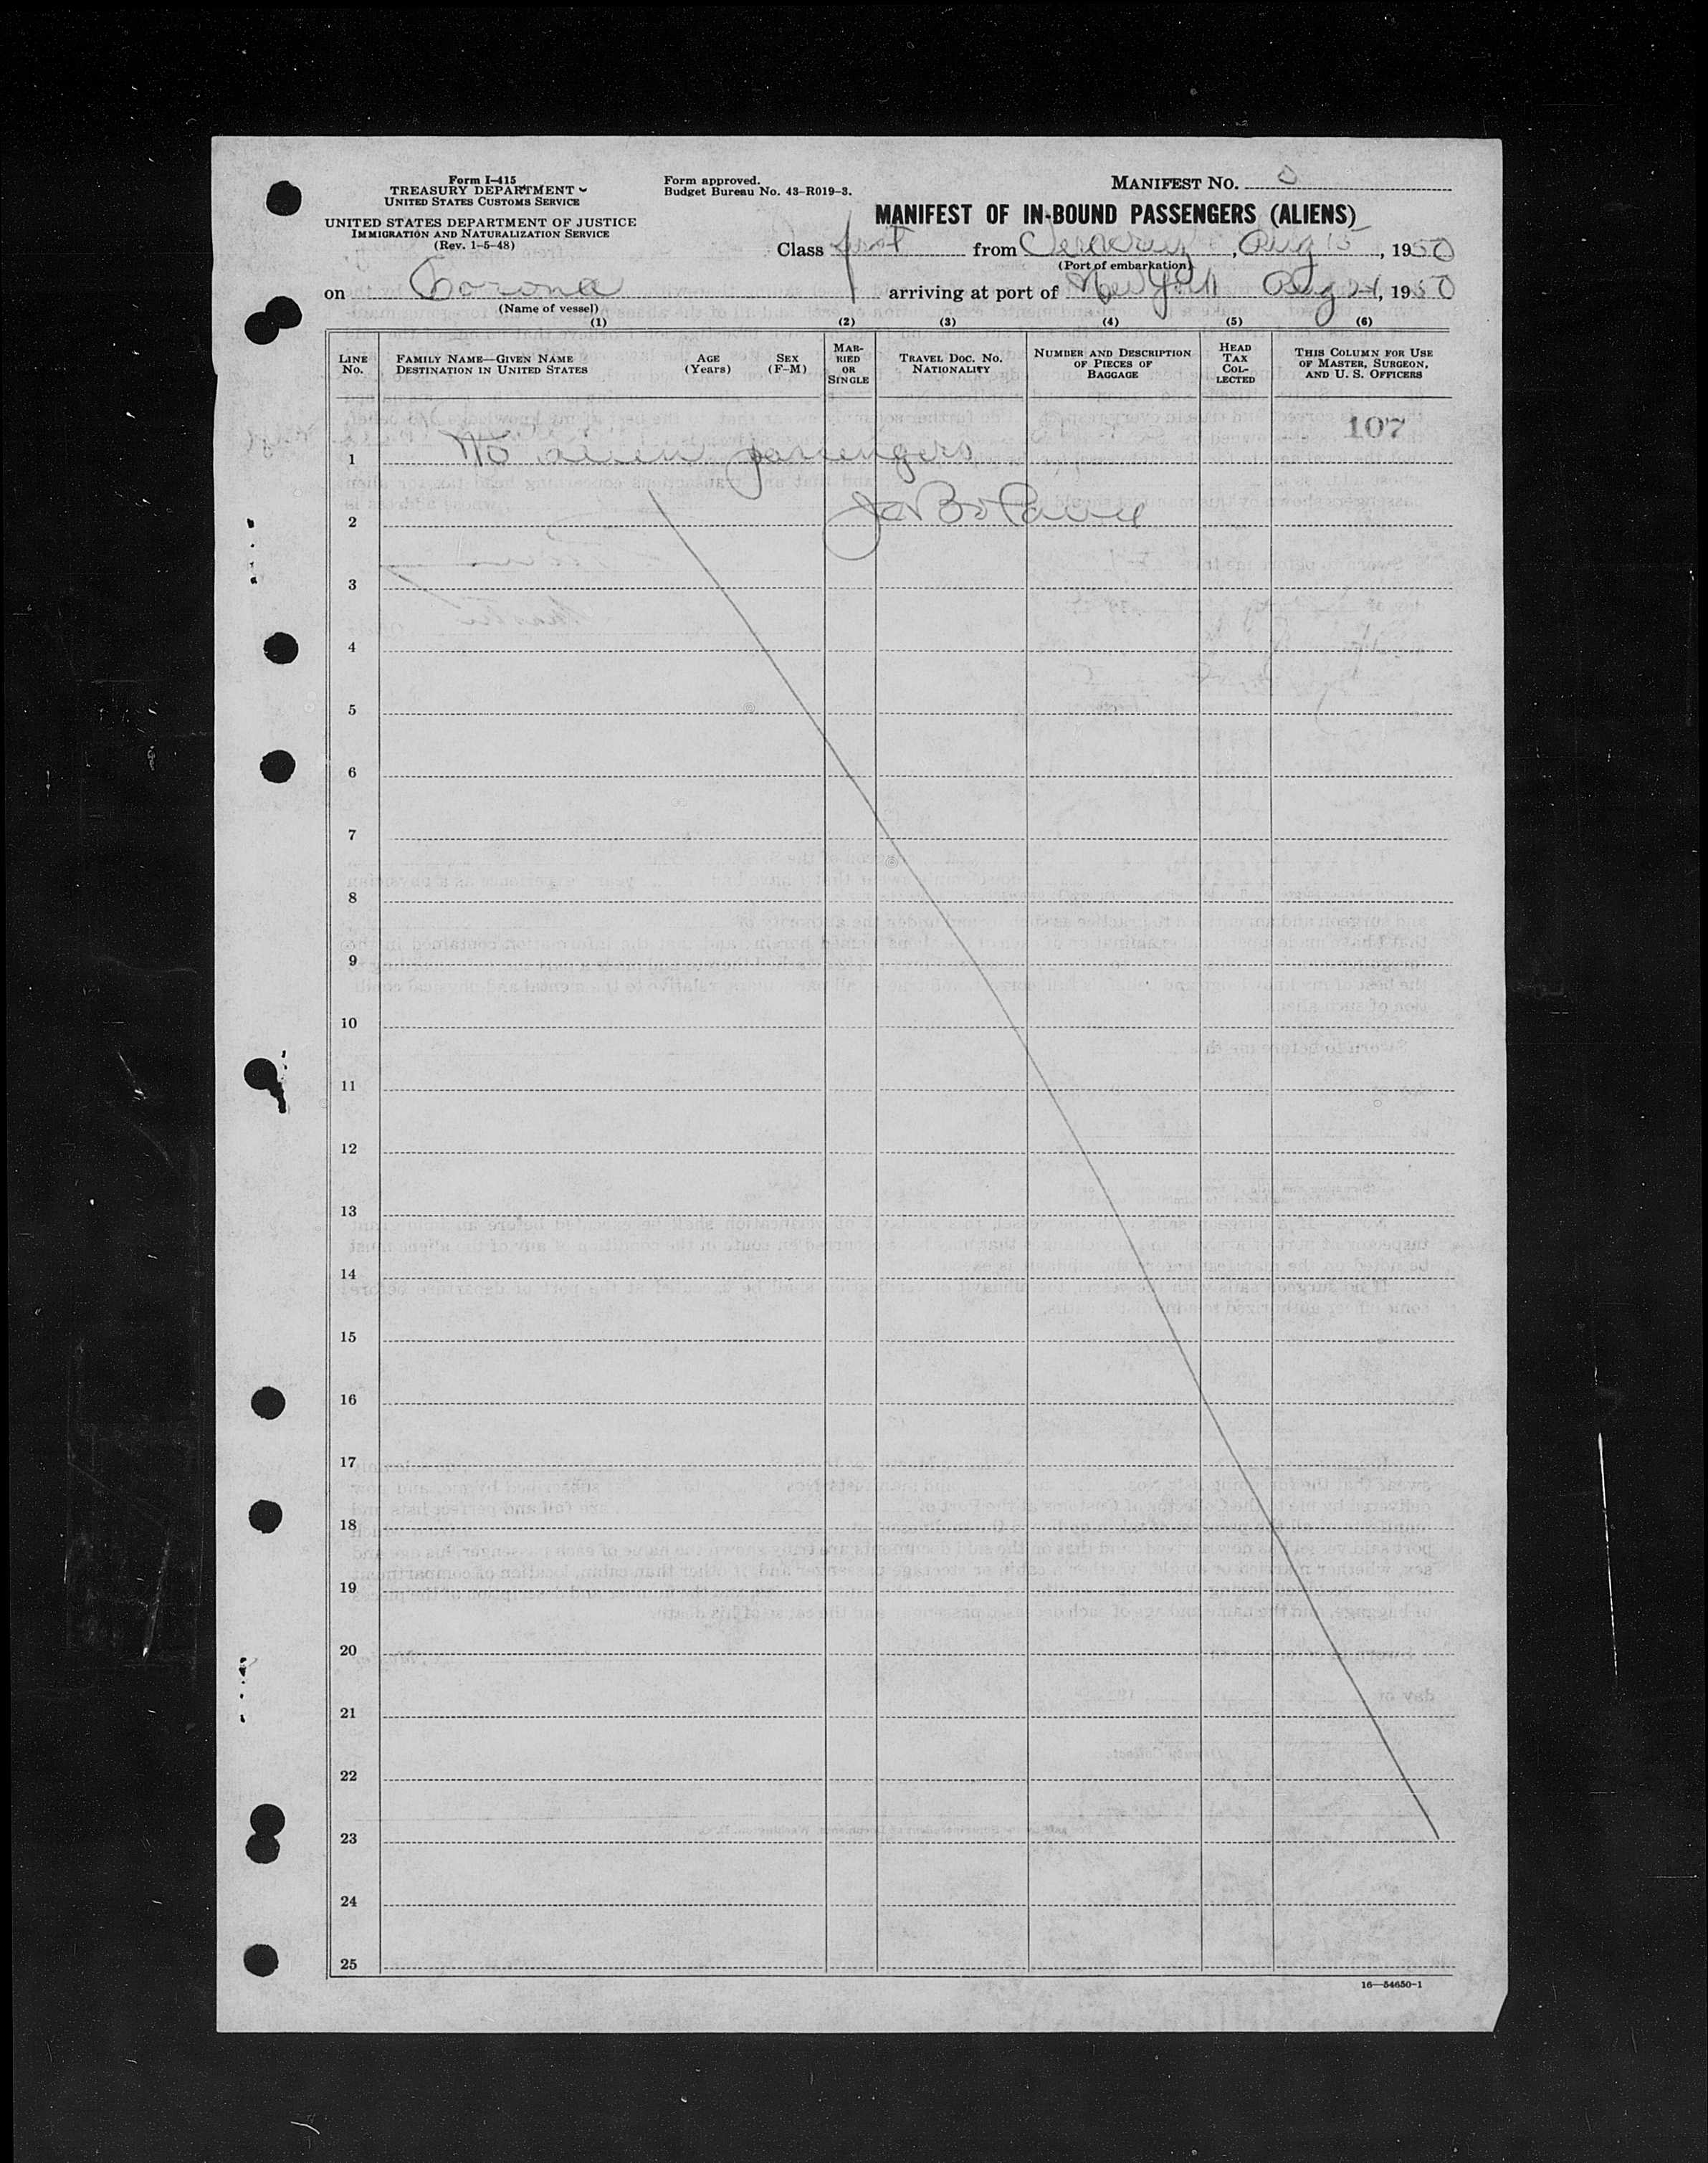 Form I-415
TREASURY DEPARTMENT
UNITED STATES CUSTOMS SERVICE
UNITED STATES DEPARTMENT OF JUSTICE
IMMIGRATION AND NATURALIZATION SERVICE
(Rev. 1-5-48)
Form approved.
Budget Bureau No. 43-R019-3.
MANIFEST NO. 0
MANIFEST OF IN-BOUND PASSENGERS (ALIENS)
Class first from Veracruz, Aug 15, 1950
(Port of embarkation)
on Corona arriving at port of New York Aug 21, 1950
(Name of vessel)
(1) (2) (3) (4) (5) (6)
LINE No.
FAMILY NAME—GIVEN NAME
DESTINATION IN UNITED STATES
AGE
(Years)
SEX
(F-M)
MARRIED OR SINGLE
TRAVEL DOC. NO.
NATIONALITY
NUMBER AND DESCRIPTION
OF PIECES OF
BAGGAGE
HEAD
TAX
COL-
LECTED
THIS COLUMN FOR USE
OF MASTER, SURGEON,
AND U. S. OFFICERS
107
1 No alien passengers
2
3
4
5
6
7
8
9
10
11
12
13
14
15
16
17
18
19
20
21
22
23
24
25
16—54650-1